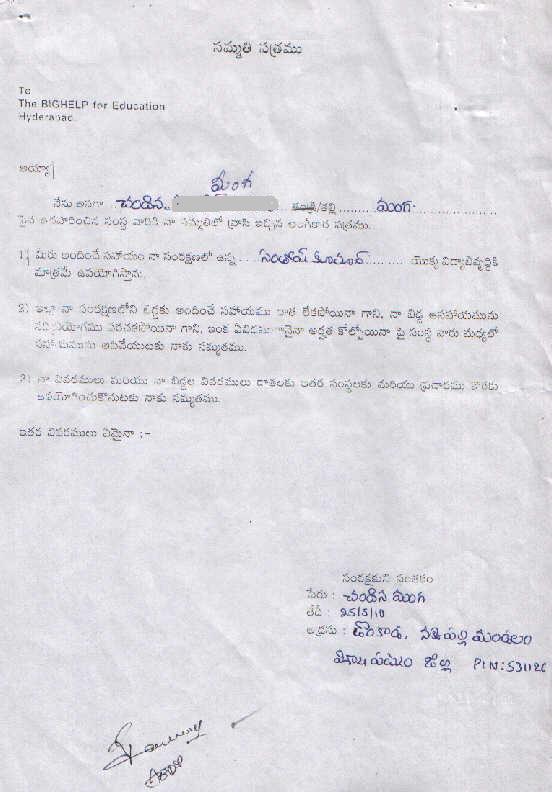 సమ్మతి పత్రము
To
The BIGHELP for Education
Hyderabad.
అయ్యా,
మంగ
నేను అనగా చందిన తండ్రి/తల్లి ........ మంగ
పైన ఉదహరించిన సంస్థ వారికి నా సమ్మతితో వ్రాసి ఇచ్చిన అంగీకార పత్రము.
1) మీరు అందించే సహాయం నా సంరక్షణలో ఉన్న ... సంతోష్ కుమార్ ......... యొక్క విద్యాభివృద్ధికి
మాత్రమే ఉపయోగిస్తాను.
2) ఇలా నా సంరక్షణలోని బిడ్డకు అందించే సహాయము దాత లేకపోయినా గాని, నా బిడ్డ ఆ సహాయమును
సద్వినియోగము పరచకపోయినా గాని, ఇంక ఏవిధముగానైనా అర్హత కోల్పోయినా పై సంస్థ వారు మధ్యలో
సహాయమును ఆపివేయుటకు నాకు సమ్మతము.
3) నా వివరములు మరియు నా బిడ్డల వివరములు దాతలకు ఇతర సంస్థలకు మరియు ప్రచారము కొరకు
ఉపయోగించుకొనుటకు నాకు సమ్మతము.
ఇతర వివరములు ఏమైనా :-
సంరక్షకుని సంతకం
పేరు : చందిన మంగ
తేదీ : 25/5/10
అడ్రసు : మండలం
జిల్లా PIN: 531126